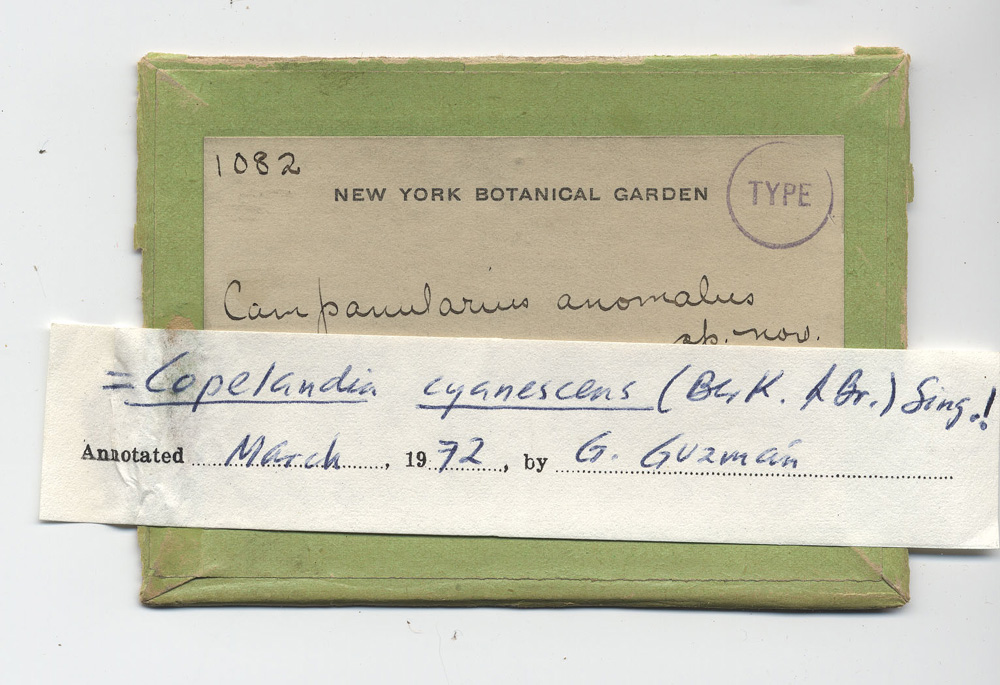 1082
NEW YORK BOTANICAL GARDEN
TYPE
Campanularius anomalus
sp. nov.
= Copelandia cyanescens (Berk. & Br.) Sing.!
Annotated March, 1972, by G. Guzmán